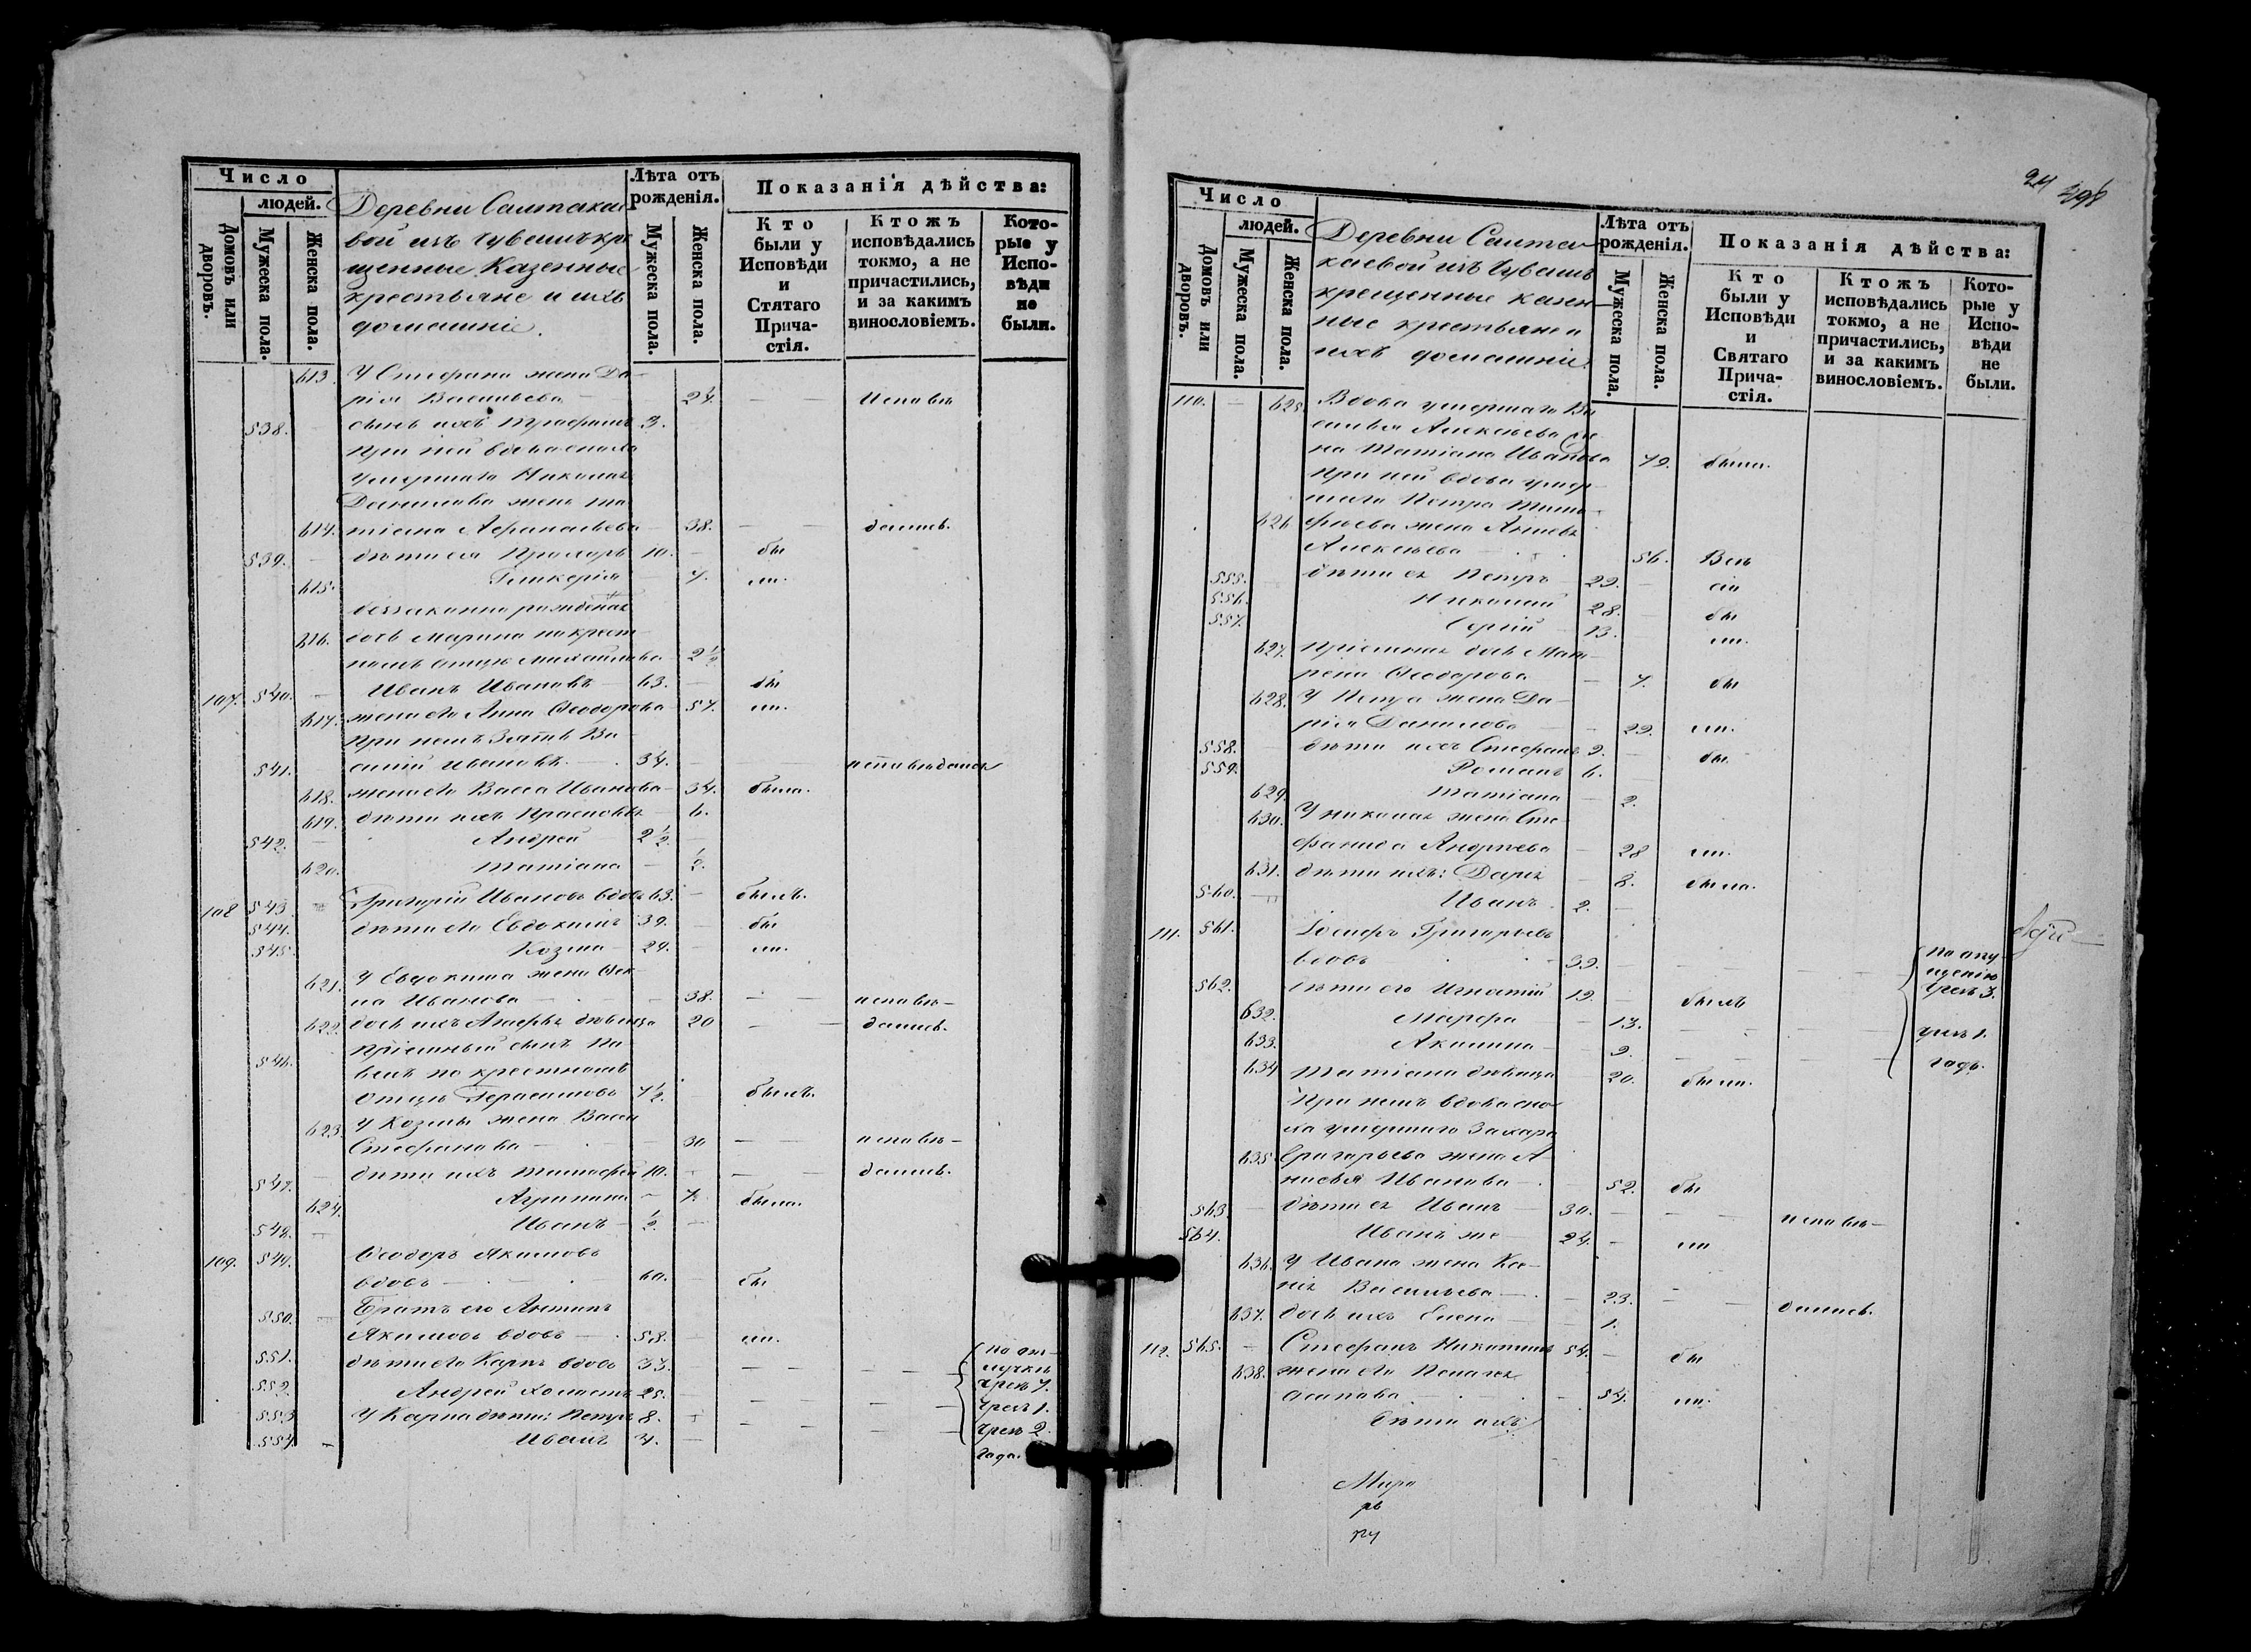 Число
людей.
Домовъ или дворовъ.
Мужеска пола.
Женска пола.
Деревни Саитакае
вой изъ Чувашъ кре
щенные Казенные
крестьяне и ихъ
домашніе.
Лѣта отъ рожденія.
Мужеска пола.
Женска пола.
Показанія дѣйства:
Кто были у Исповѣди и Стятаго Прича-стія.
Ктожъ исповѣдались токмо, а не причастились, и за какимъ винословіемъ.
Кото-рые у Испо-вѣди не были.
613. У Стефана жена Да-
рія Васильева 24. Исповѣ
538. сынъ ихъ Трофимъ 3.
При ней вдова сноха
умершаго Николая
Данилова жена Та
614. тіана Афанасьева 38. дались.
539. дѣти ея Прохоръ 10. бы
615. Гликерія 7. ли.
беззаконно рожденая
616. дочь Марина по крест
номъ отцу Михайлова 2 1/2
107. 540. Иванъ Ивановъ 63. бы
617. жена его Анна Ѳеодорова 57. ли.
При немъ Зять Ва
541. силій Ивановъ 34. исповѣдался
618. жена его Васса Иванова 34. была.
619. дѣти ихъ Прасковья 6.
542. Андрей 2 1/2.
620. Татіана 1/2.
108 543. Григорій Ивановъ вдовъ 63. былъ.
544. дѣти его Евдокимъ 39. бы
545. Козма 29. ли.
У Евдокима жена Ѳек-
621. ла Иванова 38. исповѣ-
622. дочь ихъ Агафья дѣвица 20 дались.
546. Пріемный сынъ Па
велъ по крестномъ
Отцѣ Герасимовъ 7 1/2. былъ.
623. У Козмы жена Васса
Стефанова 30 исповѣ-
547. дѣти ихъ Тимофей 10. дались.
624. Агрипина 7. была.
548. Иванъ 1/2.
109. 549. Ѳеодоръ Якимовъ
вдовъ 60. бы
550. Братъ его Антипъ
Якимовъ вдовъ 58. ли.
551. дѣти его Карпъ вдовъ 33. по от-
лучкѣ
552. Андрей холостъ 25. чрезъ 7.
553 У Карпа дѣти: Петръ 8. чрезъ 1.
554. Иванъ 4. чрезъ 2.
года.
24 298
Число
людей.
Домовъ или дворовъ.
Мужеска пола.
Женска пола.
Деревни Саита
каевой изъ Чувашъ
крещенные казен
ные крестьяне и
ихъ домашніе.
Лѣта отъ рожденія.
Мужеска пола.
Женска пола.
Показанія дѣйства:
Кто были у Исповѣди и Святаго Прича-стія.
Ктожъ исповѣдались токмо, а не причастились, и за какимъ винословіемъ.
Кото-рые у Испо-вѣди не были.
110. 625. Вдова умершаго Ва
силья Алексѣева же
на Татіана Иванова 79. была.
При ней вдова умер
шаго Петра Тимо-
626 фѣева жена Анна
Алексѣева 56. Всѣ
555. дѣти ея Петръ 29. сіи
556. Николай 28. бы
557. Сергій 13. ли.
627. Пріемная дочь Мат-
рена Ѳеодорова 7. бы
628. У Петра жена Да-
рія Данилова 29. ли.
558. дѣти ихъ Стефанъ 9. бы.
559. Романъ 6.
629. Татіана 2.
630. У Николая жена Сте-
фанида Андреева 28 ли.
631. дѣти ихъ: Дарья 8. была.
560. Иванъ 2.
111. 561. Іосифъ Григорьевъ
вдовъ 39. По опу-
щенію
562. дѣти его Игнатій 19. былъ чрезъ 3.
632. Марфа 13.
633. Акилина 9. чрезъ 1.
634 Татіана дѣвица 20. была. годъ.
При немъ вдова сно
ха умершаго Захара
635. Григорьева жена А-
нисья Иванова 52. бы
563. дѣти ея Иванъ 30. исповѣ-
564. Иванъ же 24. ли
636. У Ивана жена Ксе-
нія Васильева 23. дались.
637. дочь ихъ Елена 1.
112. 565. Стефанъ Никитинъ 54. бы
638. жена его Пелагея
Осипова 54. ли.
Дѣти ихъ